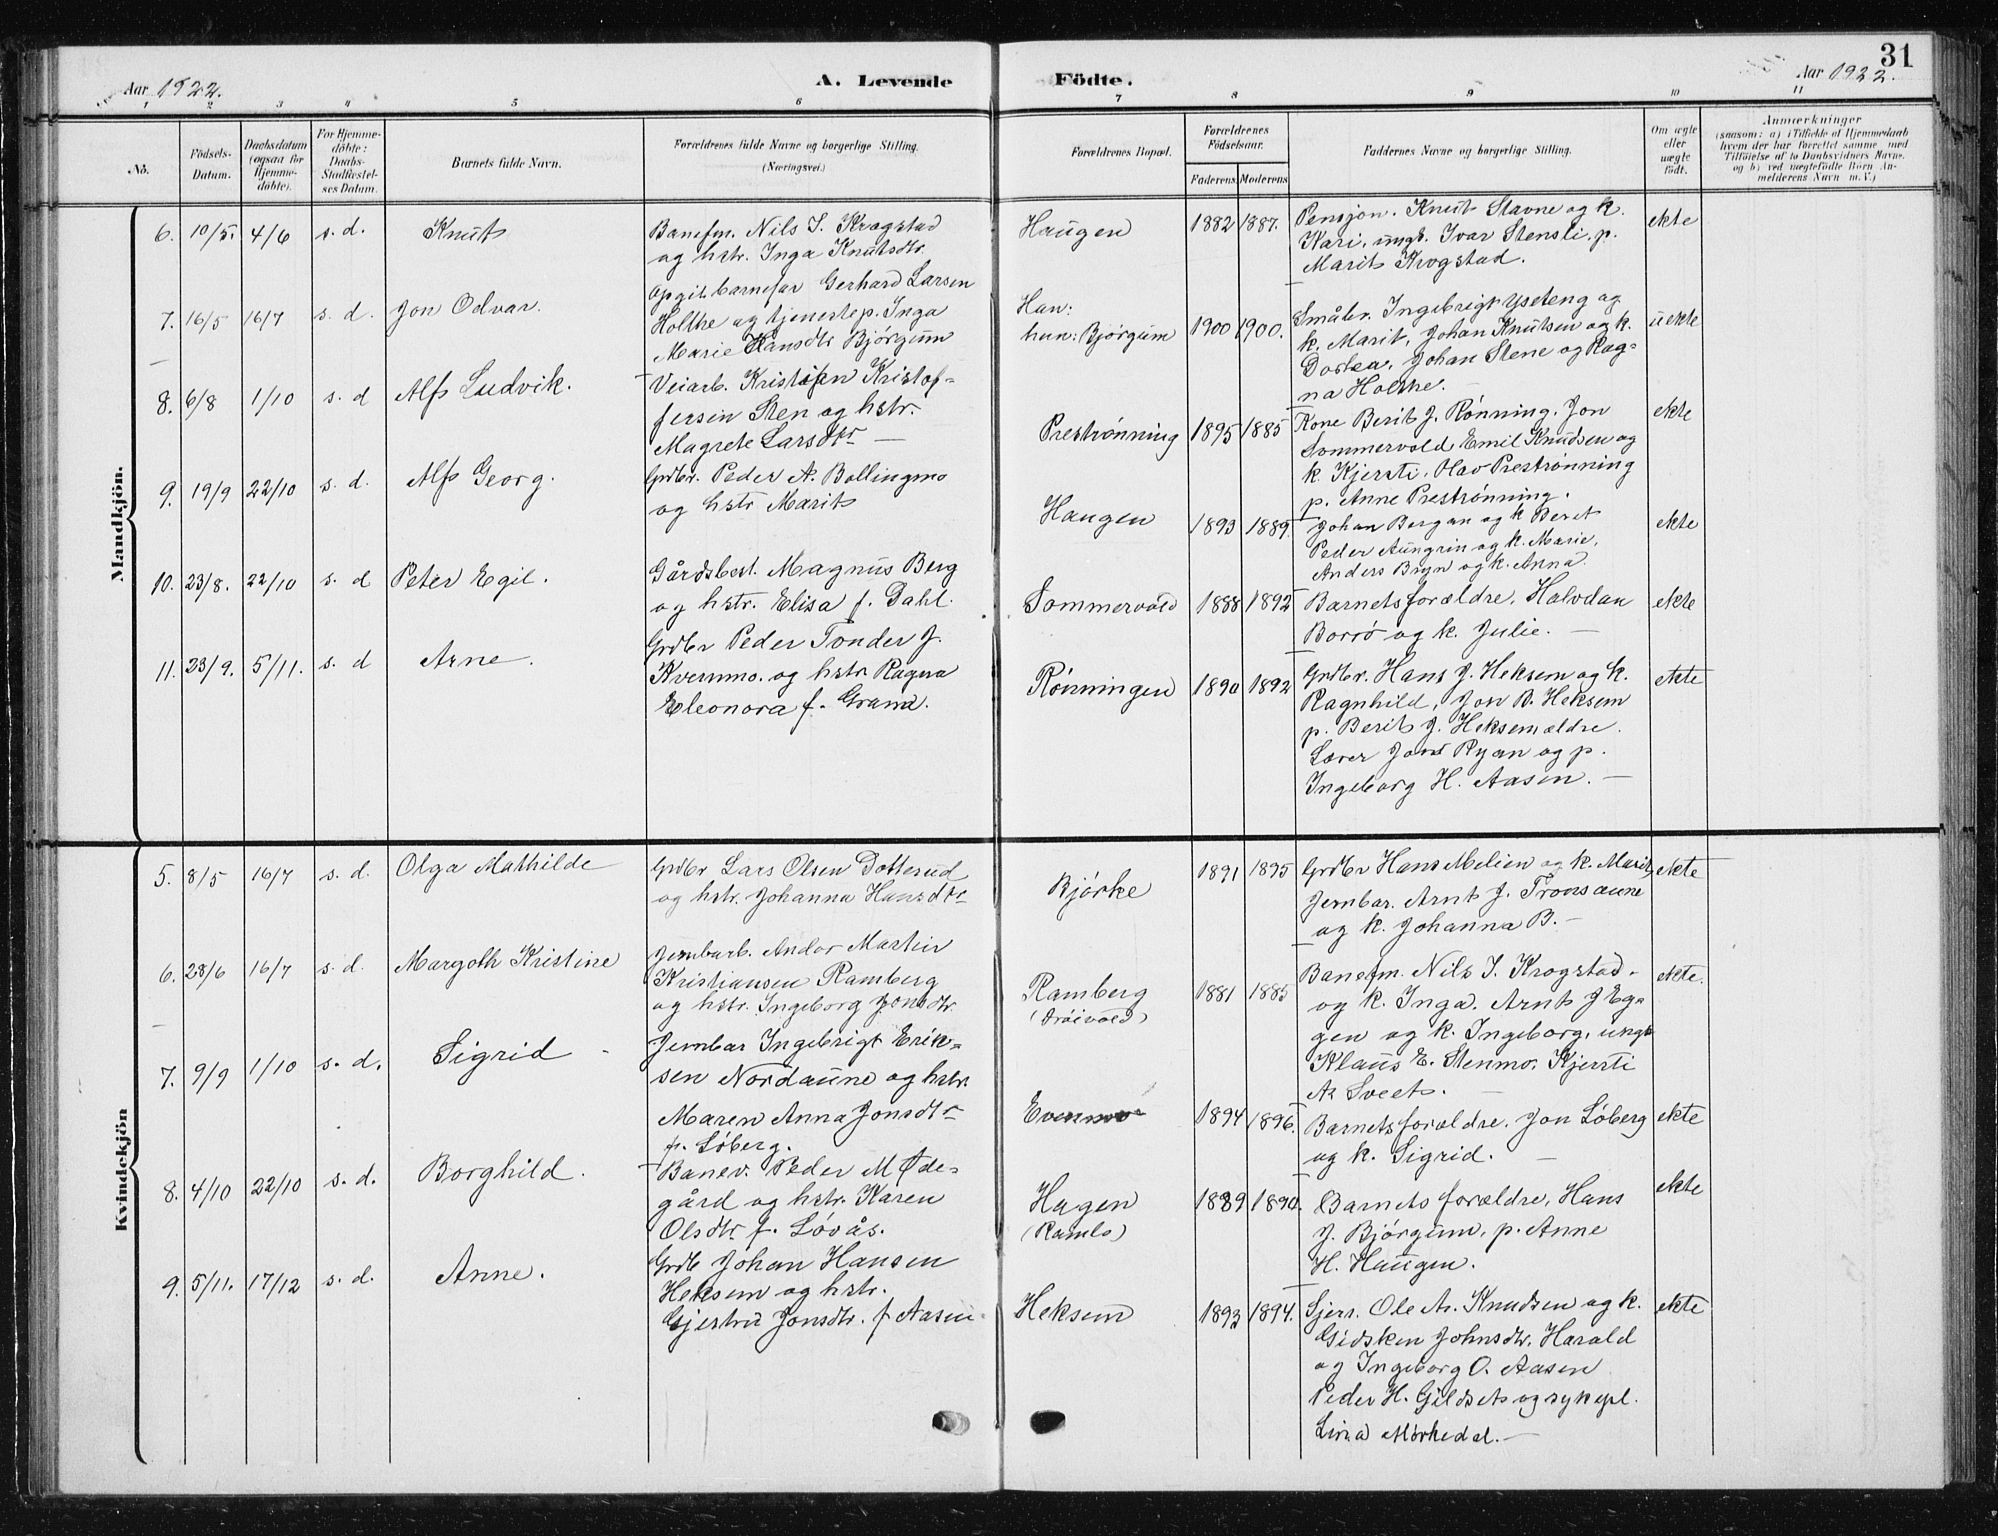 31
Aar 1922.
A. Levende
Födte.
Aar 1922.
1 2 3 4 5 6 7 8 9 10 11
No.
Födsels-
Datum.
Daabsdatum
(ogsaa for
Hjemme-
döbte).
For Hjemme-
döbte:
Daabs-
Stadfæstel-
ses Datum.
Barnets fulde Navn.
Forældrenes fulde Navne og borgerlige Stilling.
(Næringsvei.)
Forældrenes Bopæl.
Forældrenes
Födselsaar.
Faderens Moderens
Faddernes Navne og borgerlige Stilling.
Om ægte
eller
uægte
født.
Anmærkninger
(saasom: a) i Tilfælde af Hjemmedaab
hvem der har forrettet samme med
Tilföielse af to Daabsvidners Navne.
og b) ved uægtefödte Börn An-
melderens Navn m. V.)
Mandkjön.
6. 10/5. 4/6 s. d. Knut
Banefm. Nils I. Krogstad
og hstr. Inga Knutsdtr.
Haugen 1882 1887.
Pensjon. Knut Stavne og k.
Kari, ungk. Ivar Stensli, p.
Marit Krogstad.
ekte
7. 16/5 16/7 s. d. Jon Odvar.
Opgit barnefar Gerhard Larsen
Holthe og tjenestep. Inga
Marie Hansdtr Bjørgum
Han:
hun: Bjørgum 1900 1900.
Småbr. Ingebrigt Yseteng og
k. Marit, Johan Knutsen og k.
Dortea, Johan Stene og Rag-
na Holthe.
uekte
8. 6/8 1/10 s. d Alf Ludvik.
Veiarb. Kristofan Kristof-
fersen Sten og hstr.
Magrete Larsdtr
Prestrønning 1895 1885
Kone Berit J. Rønning, Jon
Sommervold, Emil Knudsen og
k. Kjersti, Olav Prestrønning
p. Anne Prestrønning.
ekte
9. 19/9 22/10 s. d. Alf Georg.
Grdbr. Peder A. Bollingmo
og hstr Marit
Haugen 1893 1889.
Johan Bergan og k Beret
Peder Aungrin og k. Marie,
Anders Bryn og k. Anna.
ekte
10. 23/8. 22/10 s. d Peter Egil.
Gårdsbest. Magnus Berg
og hstr. Elisa f. Dahl.
Sommervold 1888 1892
Barnets forældre, Halvdan
Borrø og k. Julie.
ekte
11. 23/9. 5/11. s. d Arne.
Grdbr Peder Tonder J.
Kvernmo. og hstr Ragna
Eleonora f. Grana.
Rønningen 1890 1892
Grdbr. Hans J. Heksem og k.
Ragnhild, Jon B. Heksem
p. Berit J. Heksem ældre.
Lærer Jons Ryan og p.
Ingeborg H. Aasen.
ekte
Kvindekjön
5. 8/5 16/7 s. d. Olga Mathilde
Grdbr Lars Olsen Dotterud
og hstr. Johanna Hansdtr
Bjørke 1891 1895
Grdbr Hans Melien og k. Marit,
Jernbar. Arnt J. Tronsaune
og k. Johanna B.
ekte
6. 28/6 16/7 s. d. Margoth Kristine
Jernbarb. Andor Martin
Kristiansen Ramberg
og hstr. Ingeborg Jonsdtr.
Ramberg
(Drøivold) 1881 1885
Banefm. Nils I. Krogstad
og k. Inga. Arnt J Eg-
gen og k. Ingeborg, ungk
Klaus E. Stenmo. Kjersti
A. Sveet.
ekte.
7. 9/9 1/10 s. d. Sigrid
Jernbar Ingebrigt Erik-
sen Nordaune og hstr.
Maren Anna Jonsdtr
f. Løberg.
Evenmo 1894 1896.
Barnets forældre. Jon Løberg
og k. Sigrid.
ekte
8. 4/10 22/10 s. d. Borghild.
Banev. Peder M Øde-
gård og hstr. Karen
Olsdtr. f. Løvås.
Hagen
(Ramlo) 1889 1890.
Barnets forældre, Hans
J. Bjørgum, p. Anne
H. Haugen.
ekte
9. 5/11. 17/12 s. d. Anne.
Grdb Johan Hansen
Heksem og hstr.
Gjertru Jonsdtr. f Aasen
Heksem 1893 1894.
Sjers. Ole Ar. Knudsen og k.
Gidsken Johnsdtr, Harald
og Ingeborg O. Aasen
Peder H. Gildset og sykepl.
Lina Mørkedal.
ekte